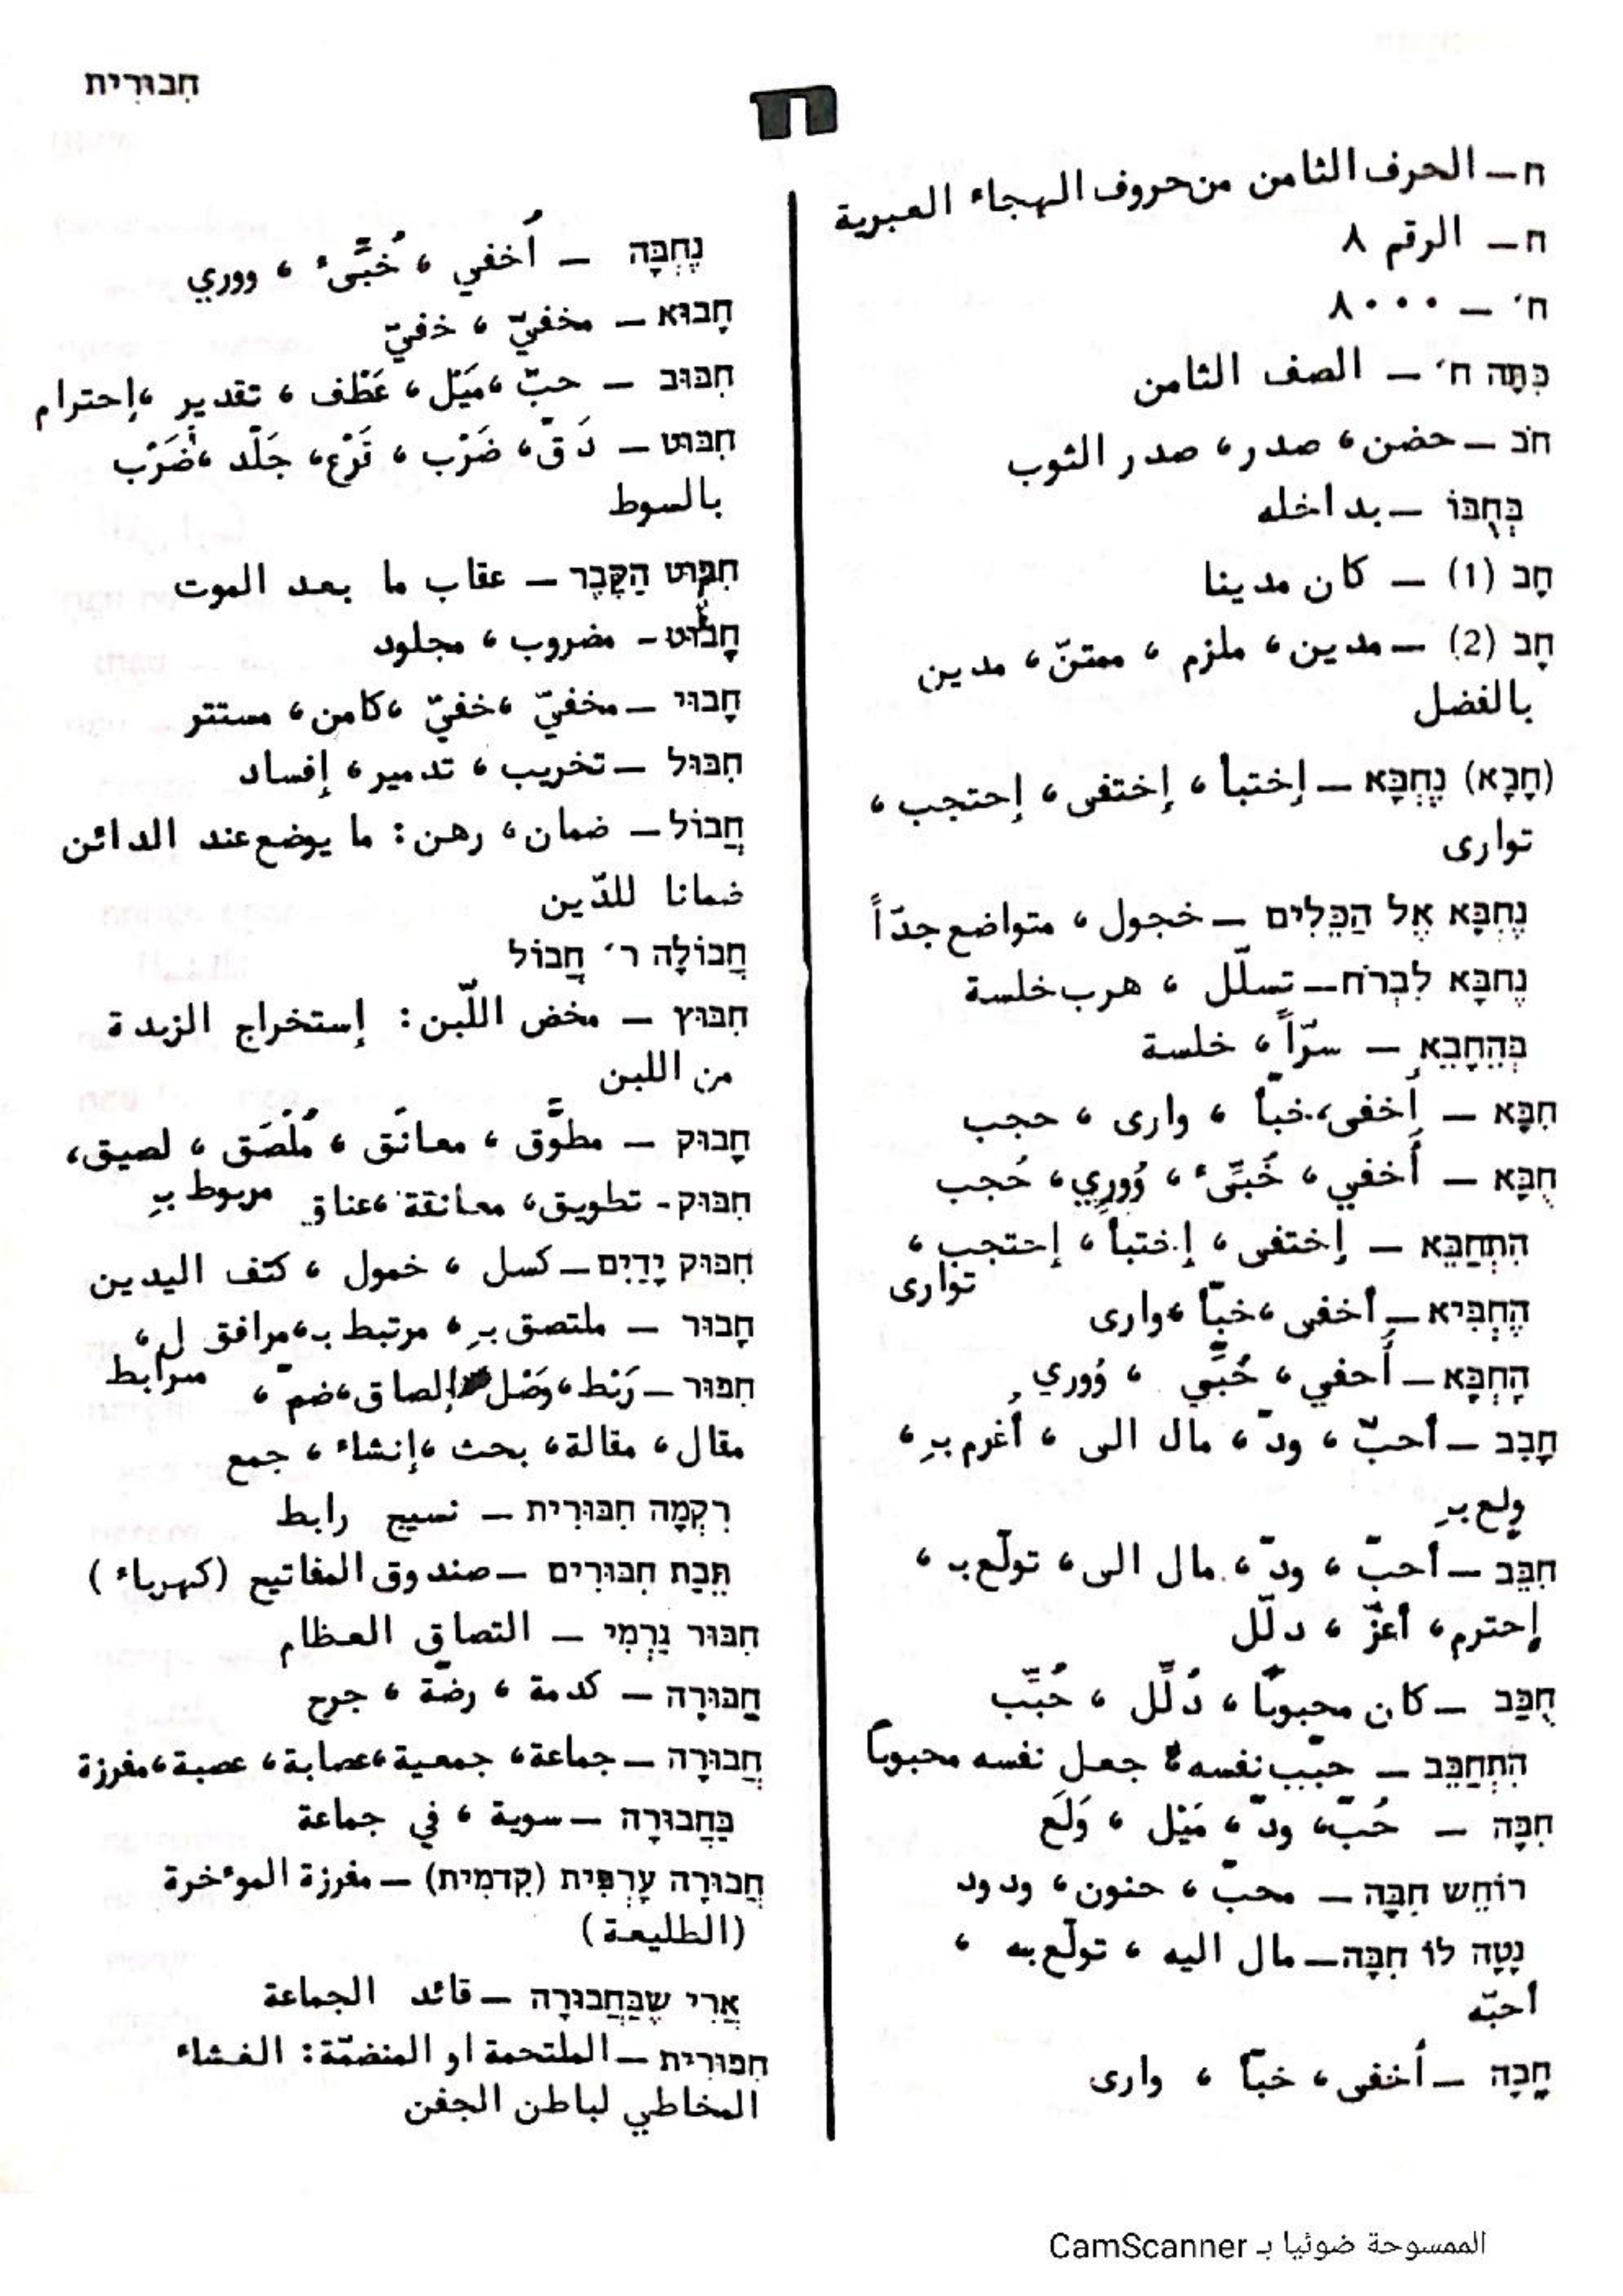 חִבּוּרִית
ח
ח – الحرف الثامن من حروف الهجاء العبرية
ח – الرقم ٨
ח׳ – ٨٠٠٠
כִּתָּה ח׳ – الصف الثامن
חֹב – حضن، صدر، صدر الثوب
בְּחֻבּוֹ – بداخله
חָב (1) – كان مدينا
חָב (2) – مدين، ملزم، ممتنّ، مدين
بالفضل
(חָבָא) נֶחְבָּא – إختبأ، إختفى، إحتجب،
توارى
נֶחְבָּא אֶל הַכֵּלִים – خجول، متواضع جدّاً
נֶחְבָּא לִבְרֹחַ – تسلّل، هرب خلسة
בְּהֵחָבֵא – سرّاً، خلسة
חִבָּא – أَخفى، خبّأ، وارى، حجب
חֻבָּא – أُخفي، خُبِّىء، وُورِي، حُجب
הִתְחַבֵּא – إختفى، إختبأ، إحتجب،
توارى
הֶחְבִּיא – أخفى، خبّأ، وارى
הָחְבָּא – أُحفي، خُبِّي، وُوري
חָבַב – أحبّ، ودّ، مال الى، أُغرم بـِ،
ولع بـِ
חִבֵּב – أحبّ، ودّ، مال الى، تولّع بـ،
إحترم، أعزّ، دلّل
חֻבַּב – كان محبوبًا، دُلِّل، حُبِّب
הִתְחַבֵּב – حبّب نفسه، جعل نفسه محبوباً
חִבָּה – حُبّ، ودّ، مَيْل، وَلَع
רוֹחֵשׁ חִבָּה – محبّ، حنون، ودود
נָטָה לוֹ חִבָּה – مال اليه، تولّع به،
أحبّه
חָבָה – أَخفى، خبّأ، وارى
נֶחְבָּה – أُخفي، خُبَّىء، ووري
חָבוּא – مخفيّ، خفيّ
חִבּוּב – حبّ، مَيْل، عَطْف، تقدير، إحترام
חִבּוּט – دَقّ، ضَرْب، قَرْع، جَلْد، ضَرْب
بالسوط
חִבּוּט הַקֶּבֶר – عقاب ما بعد الموت
חָבוּט – مضروب، مجلود
חָבוּי – مخفيّ، خفيّ، كامن، مستتر
חִבּוּל – تخريب، تدمير، إفساد
חֲבוֹל – ضمان، رهن: ما يوضع عند الدائن
ضمانا للدّين
חֲבוֹלָה ר׳ חֲבוֹל
חִבּוּץ – مخض اللّبن: إستخراج الزبدة
من اللبن
חָבוּק – مطوَّق، معانَق، مُلْصَق، لصيق،
مربوط بـِ
חִבּוּק - تطويق، معانقة، عناق
חִבּוּק יָדַיִם – كسل، خمول، كتف اليدين
חָבוּר – ملتصق بـِ، مرتبط بـ، مرافق ل،
مرابط
חִבּוּר – رَبْط، وَصْل، إلصاق، ضمّ،
مقال، مقالة، بحث، إنشاء، جمع
רִקְמָה חִבּוּרִית – نسيج رابط
תֵּבַת חִבּוּרִים – صندوق المفاتيح (كهرباء)
חִבּוּר גַּרְמִי – التصاق العظام
חַבּוּרָה – كدمة، رضّة، جرح
חֲבוּרָה – جماعة، جمعية، عصابة، عصبة، مفرزة
בַּחֲבוּרָה – سوية، في جماعة
חֲבוּרָה עָרְפִּית (קִדְמִית) – مفرزة الموءخرة
(الطليعة)
אֲרִי שֶׁבַּחֲבוּרָה – قائد الجماعة
חִבּוּרִית – الملتحمة او المنضمّة: الغشاء
المخاطي لباطن الجفن
الممسوحة ضوئيا بـ CamScanner